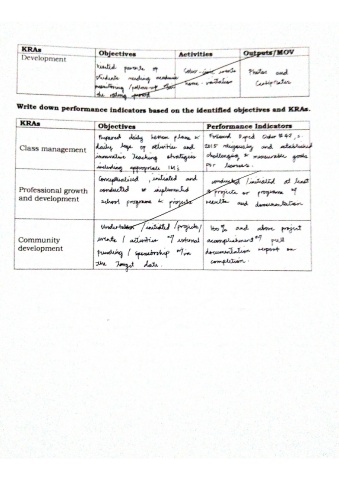 KRAs Objectives Activities Outputs/MOV
Development
parents of
students needing academic
monitoring/follow-up
home visitation
Photos and
Write down performance indicators based on the identified objectives and KRAs.
KRAs Objectives Performance Indicators
Class management
Prepared daily lesson plans &
daily logs of activities and
innovative teaching strategies
including appropriate IMs
2015 religiously and established
challenging & measurable goals
for learners.
Professional growth
and development
Conceptualized, initiated and
conducted or implemented
school programs & projects
conducted/initiated at least
projects or programs w/
results and documentation
Community
development
Undertaken/initiated/projects/
events/activities w/ external
funding/sponsorship w/in
the target date.
100% and above project
accomplishment w/ full
documentation report on
completion.